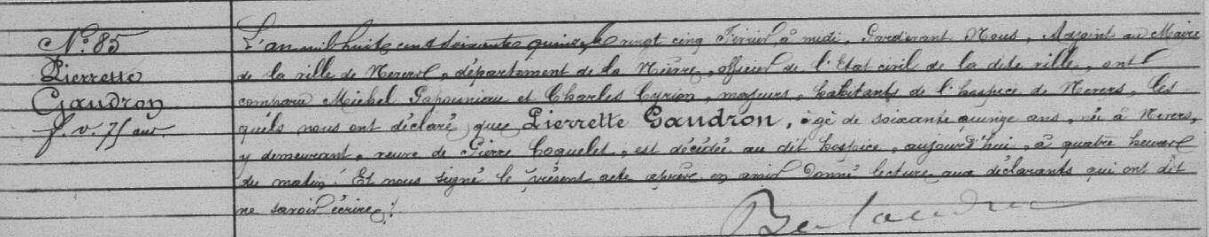 N° 85
Pierrette
Gaudron
f. v. 75 ans
L'an mil huit cent soixante quinze le vingt cinq Février à midi, Pardevant Nous, Adjoint au Maire
de la ville de Nevers, département de la Nièvre, officier de l'Etat civil de la dite ville, ont
comparu Michel et Charles Cyrion, majeurs, habitants de l'hospice de Nevers, les
quels nous ont déclaré que Pierrette Gaudron, âgé de soixante quinze ans, née à Nevers,
y demeurant, veuve de Pierre Coquelet, est décédée au dit hospice, aujourd'hui, à quatre heures
du matin. Et nous signé le présent acte après en avoir donné lecture aux déclarants qui ont dit
ne savoir écrire.